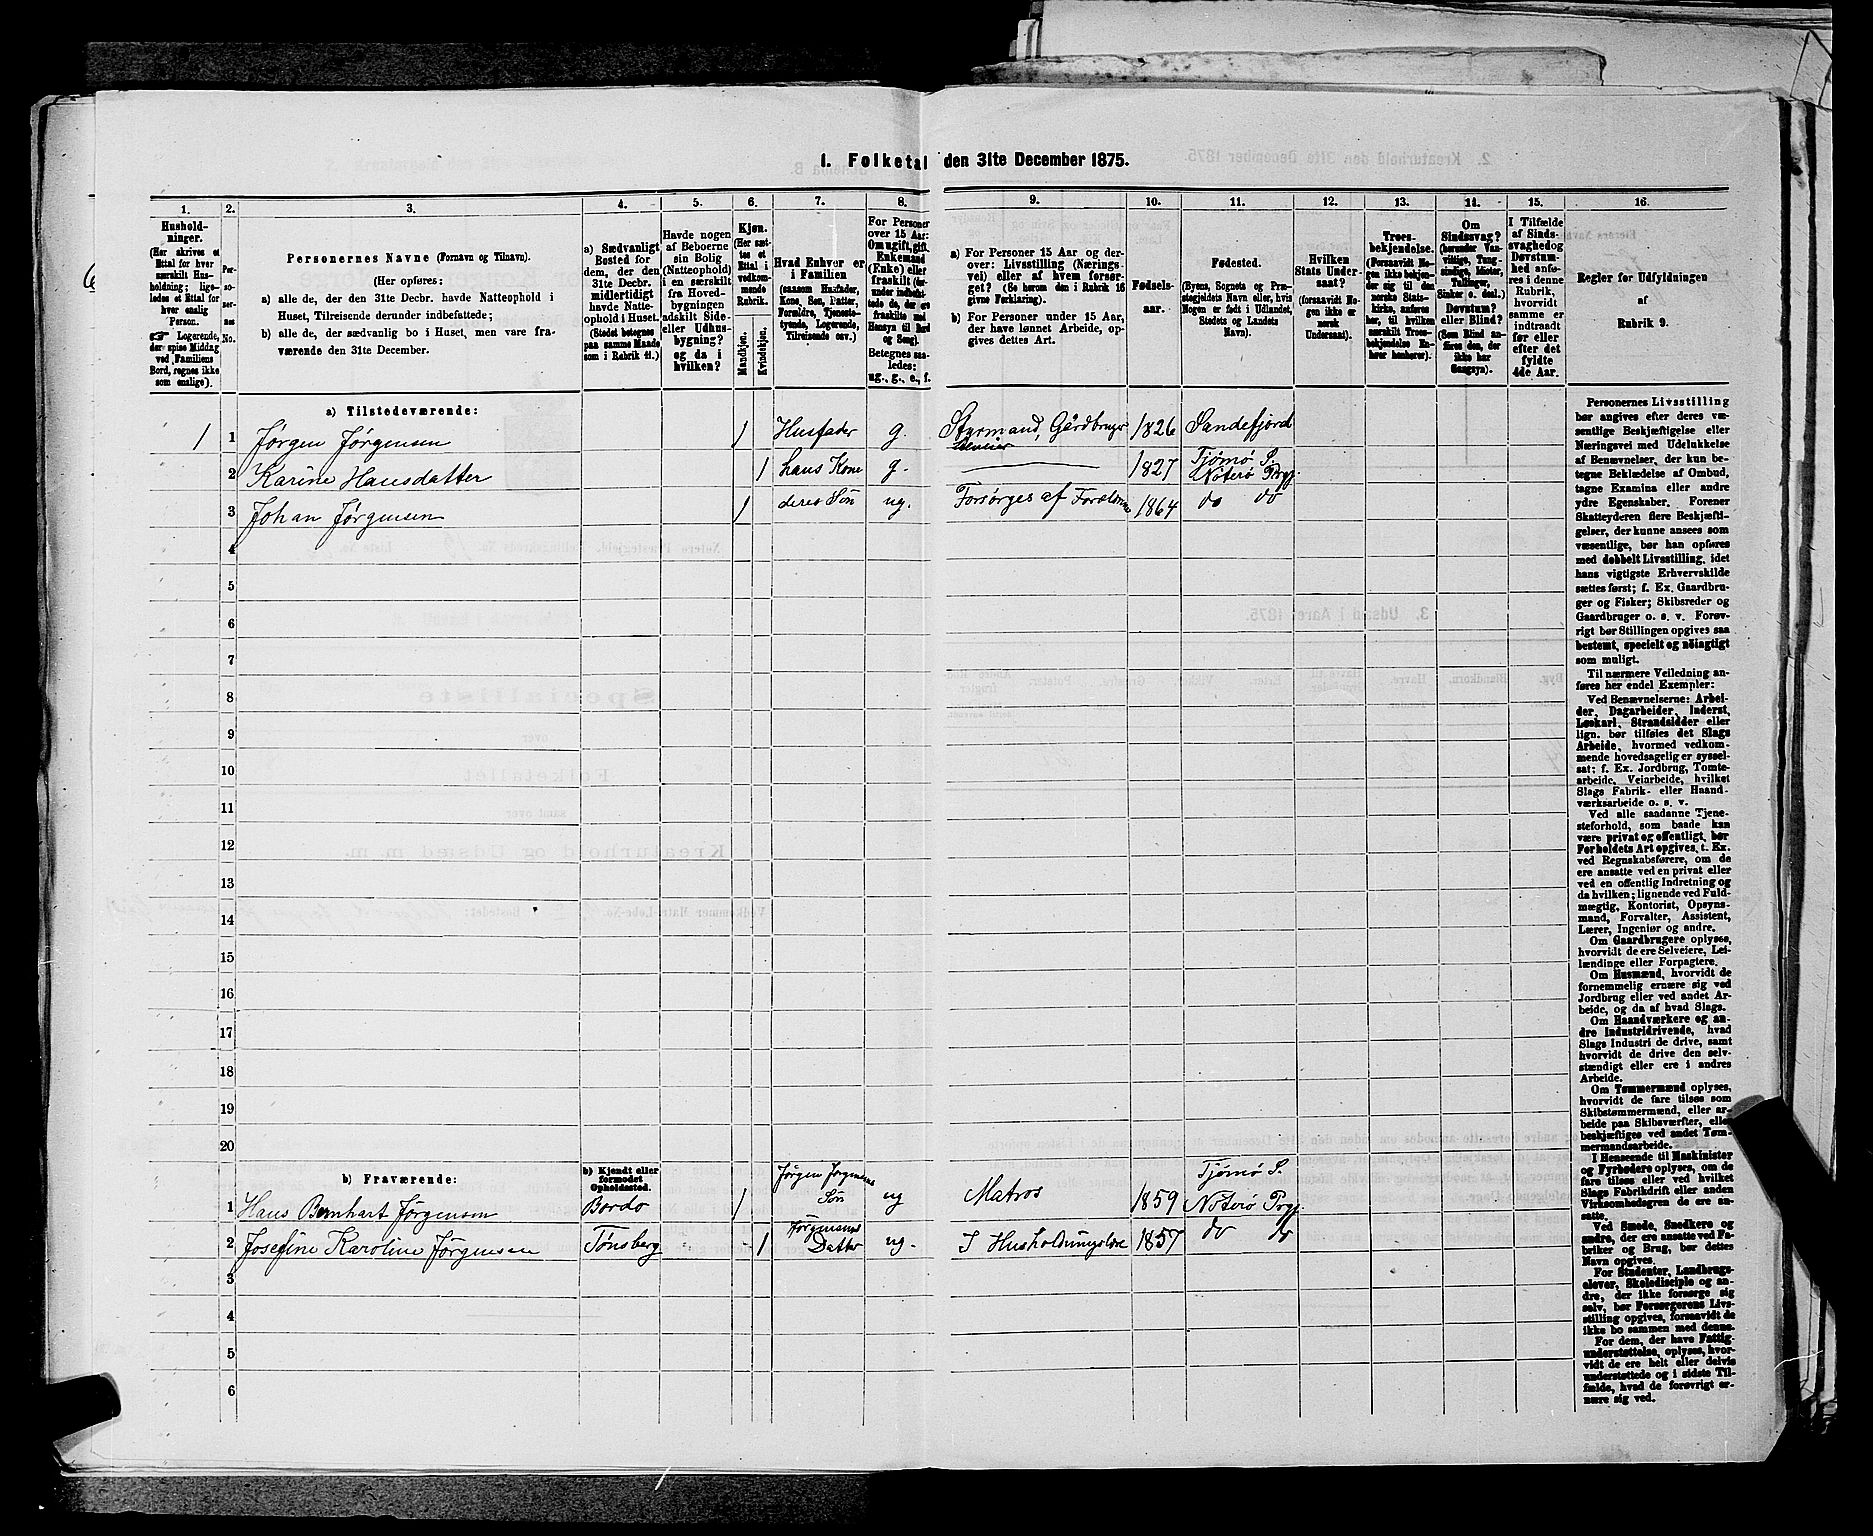 1. Folketal den 31te December 1875.
1. 2. 3. 4. 5. 6. 7. 8. 9. 10. 11. 12. 13. 14. 15. 16.
Hushold-
ninger.
(Her skrives et
Ettal for hver
særskilt Hus-
holdning; lige-
ledes et Ettal for
hver enslig
Person.
☞ Logerende,
der spise Middag
ved Familiens
Bord, regnes ikke
som enslige).
Per-
so-
ner-
nes
No.
Personernes Navne (Fornavn og Tilnavn).
(Her opføres:
a) alle de, der den 31te Decbr. havde Natteophold i
Huset, Tilreisende derunder indbefattede;
b) alle de, der sædvanlig bo i Huset, men vare fra-
værende den 31te December.
a) Sædvanligt
Bosted for
dem, der den
31te Decbr.
midlertidigt
havde Natte-
ophold i Huset.
(Stedet betegnes
paa samme Maade
som i Rubrik 11.)
Havde nogen
af Beboerne
sin Bolig
(Natteophold)
i en særskilt
fra Hoved-
bygningen
adskilt Side-
eller Udhus-
bygning?
og da i
hvilken?
Kjøn.
(Her sæt-
tes et
Ettal i
vedkom-
mende
Rubrik.
Mandkjøn.
Kvindekjøn.
Hvad Enhver er
i Familien
(saasom Husfader,
Kone, Søn, Datter,
Forældre, Tjeneste-
tyende, Logerende,
Tilreisende osv.)
For Personer
over 15 Aar:
Om ugift, gift,
Enkemand
(Enke) eller
fraskilt
Betegnes saa-
ledes:
ug., g., e., f.
a) For Personer 15 Aar og der-
over: Livsstilling (Nærings-
vei) eller af hvem forsør-
get? (Se herom den i Rubrik 16
givne Forklaring).
b) For Personer under 15 Aar,
der have lønnet Arbeide, op-
gives dettes Art.
Fødsels-
aar.
Fødested.
(Byens, Sognets og Præ-
stegjeldets Navn eller, hvis
Nogen er født i Udlandet,
Stedets og Landets
Navn).
Hvilken
Stats Under-
saat?
(forsaavidt No-
gen ikke er
norsk
Undersaat).
Troes-
bekjendelse.
(Forsaavidt No-
gen ikke bekjen-
der sig til den
norske Stats-
kirke, anføres
her, til hvilken
særskilt Troes-
bekjendelse En-
hver henhører).
Om
Sindssvag?
(herunder Van-
vittige, Tung-
sindige, Idioter,
Tullinger,
Sinker o. desl.)
Døvstum?
eller Blind?
(Som Blind an-
føres den, der
ikke har
Gangsyn).
I Tilfælde
af Sinds-
svaghed og
Døvstum-
hed anfø-
res i denne
Rubrik,
hvorvidt
samme er
indtraadt
før eller
efter det
fyldte
4de Aar.
Regler for Udfyldningen
af
Rubrik 9.
a) Tilstedeværende:
1 1 Jørgen Jørgensen 1 Husfader g. Styrmand, Gårdbruger 1826 Sandefjord
Selveier
2 Karine Hansdatter 1 hans Kone g. 1827 Tjømø S. Nøterø Prgj.
3 Johan Jørgensen 1 deres Søn ug. Forsørges af Forældrene 1864 do do
4
5
6
7
8
9
10
11
12
13
14
15
16
17
18
19
20
b) Fraværende:
b) Kjendt eller
formodet
Opholdssted.
1 Hans Bernhart Jørgensen Bordo 1 Jørgen Jørgensens Søn ug Matros 1859 Tjømø S. Nøterø Prgj.
2 Josefine Karoline Jørgensen Tønsberg 1 Jørgensens Datter ug. I Husholdningslære 1857 do do
3
4
5
6
Personernes Livsstilling
bør angives efter deres væ-
sentlige Beskjæftigelse eller
Næringsvei med Udelukkelse
af Benævnelser, der kun be-
tegne Beklædelse af Ombud,
tagne Examina eller andre
ydre Egenskaber. Forener
Skatteyderen flere Beskjæfti-
gelser, der kunne ansees som
væsentlige, bør han opføres
med dobbelt Livsstilling, idet
hans vigtigste Erhvervskilde
sættes først; f. Ex. Gaardbru-
ger og Fisker; Skibsreder og
Gaardbruger o. s. v. Forøv-
rigt bør Stillingen opgives saa
bestemt, specielt og nøiagtigt
som muligt.
Til nærmere Veiledning an-
føres her endel Exempler:
Ved Benævnelserne: Arbei-
der, Dagarbeider, Inderst,
Løskarl, Strandsidder eller
lign. bør tilføies det Slags
Arbeide, hvormed vedkom-
mende hovedsagelig er syssel-
sat; f. Ex. Jordbrug, Tomte-
arbeide, Veiarbeide, hvilket
Slags Fabrik- eller Haand-
værksarbeide o. s. v.
Ved alle saadanne Tjene-
steforhold, som baade kan
være privat og offentligt, bør
Forholdets Art opgives, t. Ex.
ved Regnskabsførere, om de
ere ansatte ved en privat eller
ved en offentlig Indretning og
da hvilken; lignende ved Fuld-
mægtig, Kontorist, Opsyns-
mand, Forvalter, Assistent,
Lærer, Ingeniør og andre.
Om Gaardbrugere oplyses,
hvorvidt de ere Selveiere, Lei-
lændinge eller Forpagtere.
Om Husmænd, hvorvidt de
fornemmelig ernære sig ved
Jordbrug eller ved andet Ar-
beide, og da af hvad Slags.
Om Haandværkere og an-
dre Industridrivende, hvad
Slags Industri de drive, samt
hvorvidt de drive den selv-
stændigt eller ere i andres
Arbeide.
Om Tømmermænd oplyses,
hvorvidt de fare tilsøs som
Skibstømmermænd, eller ar-
beide paa Skibsværfter, eller
beskjæftiges ved andet Tøm-
mermandsarbeide.
I Henseende til Maskinister
og Fyrbødere oplyses, om de
fare tilsøs eller ved hvilket
Slags Fabrikdrift eller anden
Virksomhedsgren de ere an-
satte.
Ved Smede, Snedkere og
andre, der ere ansatte ved Fa-
briker og Brug, bør dettes
Navn opgives.
For Studenter, Landbrugs-
elever, Skoledisciple og an-
dre, der ikke forsørge sig
selv, bør Forsørgerens Livs-
stilling opgives, forsaavidt de
ikke bo sammen med denne.
For dem, der have Fattig-
understøttelse, oplyses, hvor-
vidt de ere helt eller delvis
understøttede og i sidste Til-
fælde, hvad de forøvrigt er-
nære sig ved.